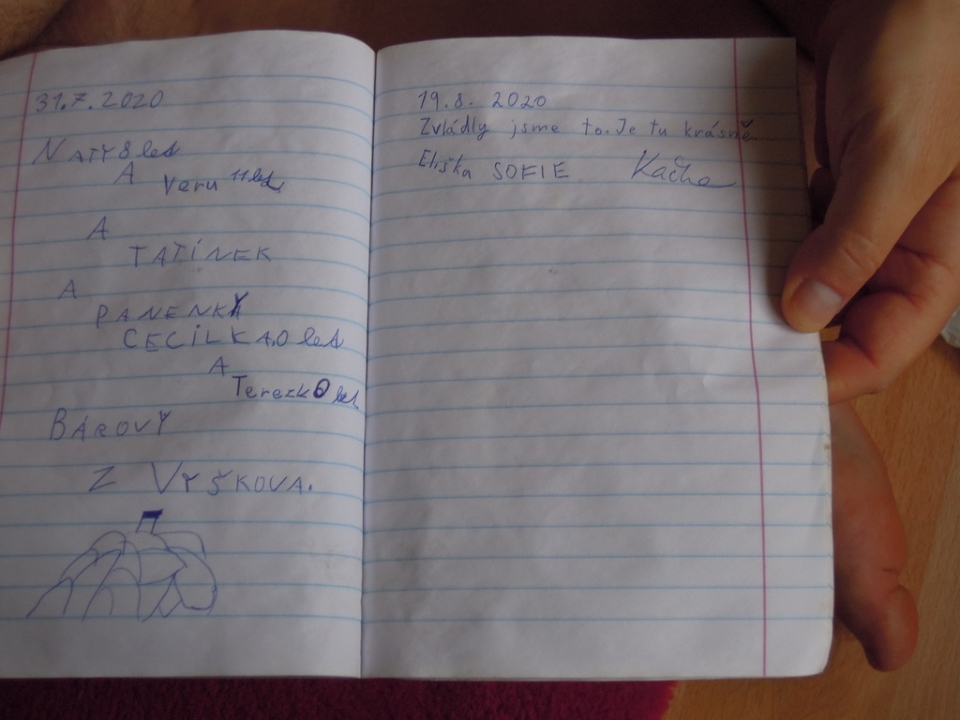 31.7.2020
NATY 8 let
A Veru 11 let
A
TATÍNEK
A
PANENKY
CECILKA.0 let
A
Terezk 0 let
BÁROVÝ
Z VYŠKOVA.
19.8. 2020
Zvládly jsme to. Je tu krásně.
Eliška SOFIE Kačka